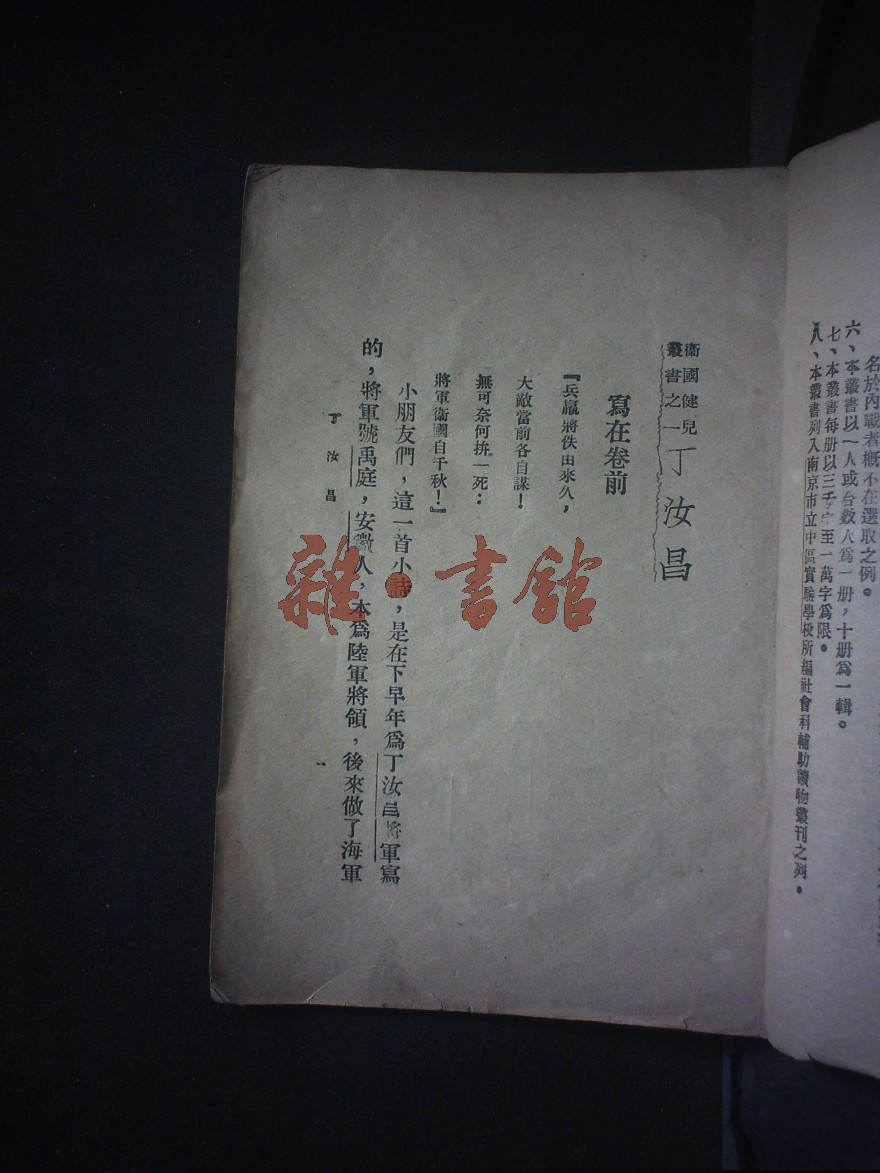 名於內戰者概不在選取之例。
六、本叢書以一人或合數人爲一册，十册爲一輯。
七、本叢書每册以三千字至一萬字爲限。
八、本叢書列入南京市立中區實驗學校所編社會科輔助讀物叢刊之列。
衞國健兒
叢書之一
丁汝昌
寫在卷前
『兵羸將佚由來久，
大敵當前各自謀！
無可奈何拚一死：
將軍衞國自千秋！』
小朋友們，這一首小詩，是在下早年爲丁汝昌將軍寫
的，將軍號禹庭，安徽人，本爲陸軍將領，後來做了海軍
丁汝昌
雜書館